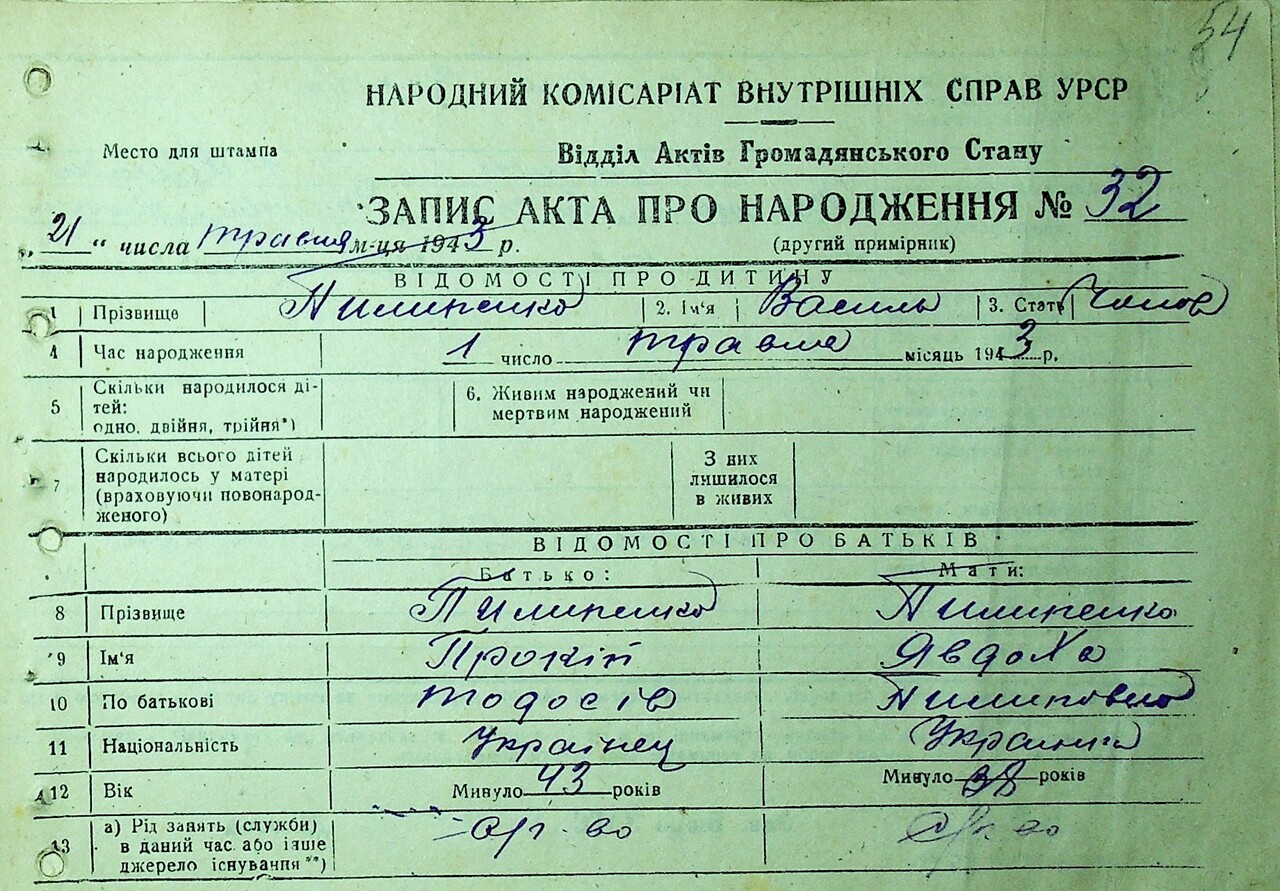 54
НАРОДНИЙ КОМІСАРІАТ ВНУТРІШНІХ СПРАВ УРСР
Место для штампа
Відділ Актів Громадянського Стану
ЗАПИС АКТА ПРО НАРОДЖЕННЯ № 32
„ 21 “ числа травня м-ця 1943 р.
(другий примірник)
ВІДОМОСТІ ПРО ДИТИНУ
1 Прізвище Пилипенко 2. Ім'я Василь 3. Стать Чолов
4 Час народження 1 число травня місяць 1943 р.
5 Скільки народилося ді-
тей:
одно, двійня, трійня*)
6. Живим народжений чи
мертвим народжений
7 Скільки всього дітей
народилось у матері
(враховуючи новонарод-
женого)
З них
лишилося
в живих
ВІДОМОСТІ ПРО БАТЬКІВ
Батько: Мати:
8 Прізвище Пилипенко Пилипенко
9 Ім'я Прокіп Явдоха
10 По батькові Тодосів Пилиповна
11 Національність Українец Украинка
12 Вік Минуло 43 років Минуло 38 років
13 а) Рід занять (служби)
в даний час або інше
джерело існування**)